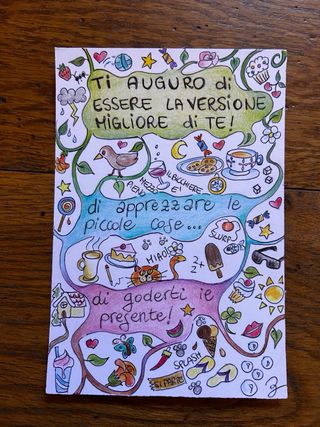 TI AUGURO di
ESSERE LA VERSIONE
MIGLIORE di TE!
IL BICCHIERE
È
MEZZO
PIENO
di apprezzare le
piccole cose...
SLURP
MIAO
Z+
di goderti ie
presente!
SPLASH
SI PARTE